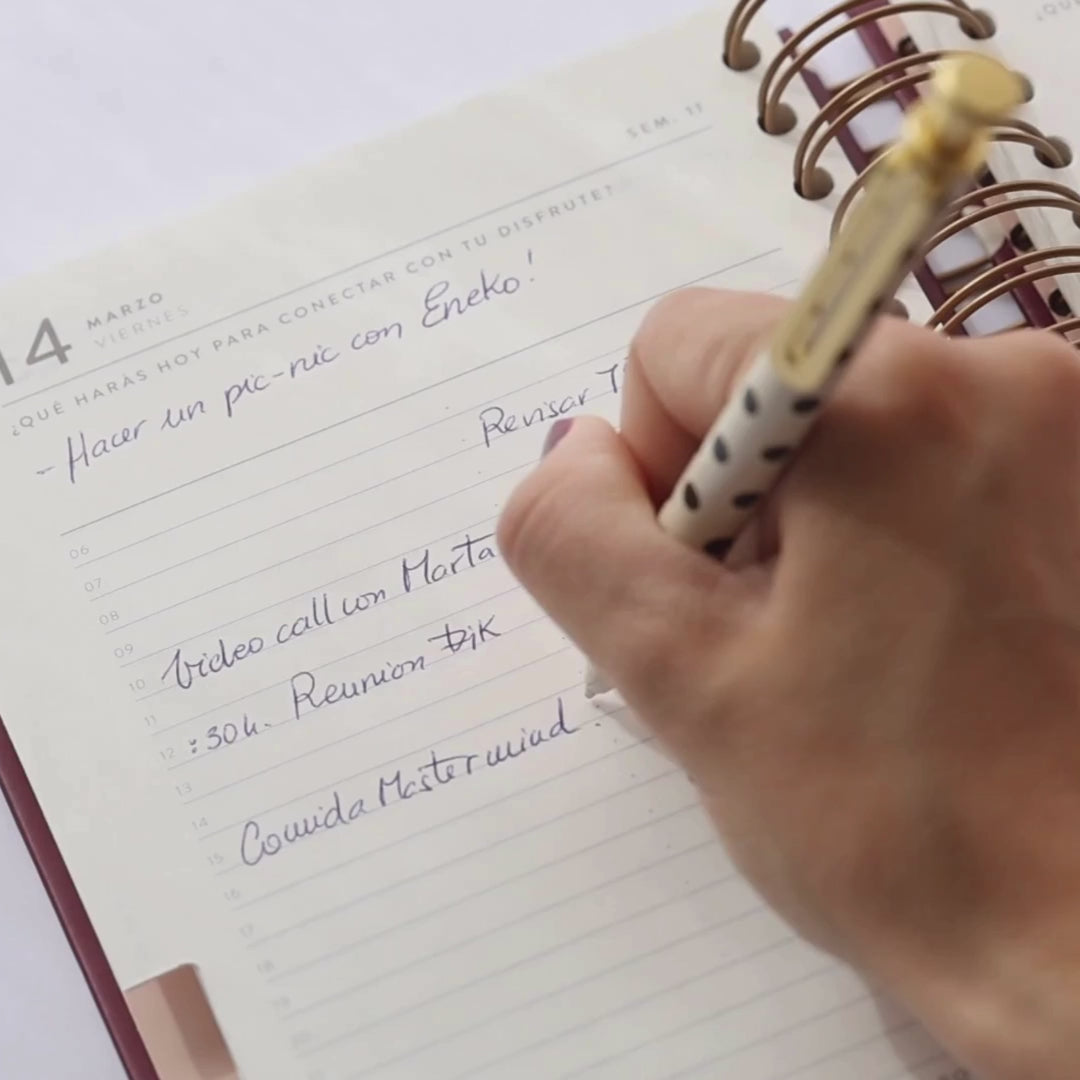 SEM. 11
14 MARZO
VIERNES
¿QUÉ HARÁS HOY PARA CONECTAR CON TU DISFRUTE?
- Hacer un pic-nic con Eneko!
Revisar
06
07
08
09
10 Video call con Marta
11
12 :30h. Reunion DiK
13
14
15 Comida Mastermind
16
17
18
19
20